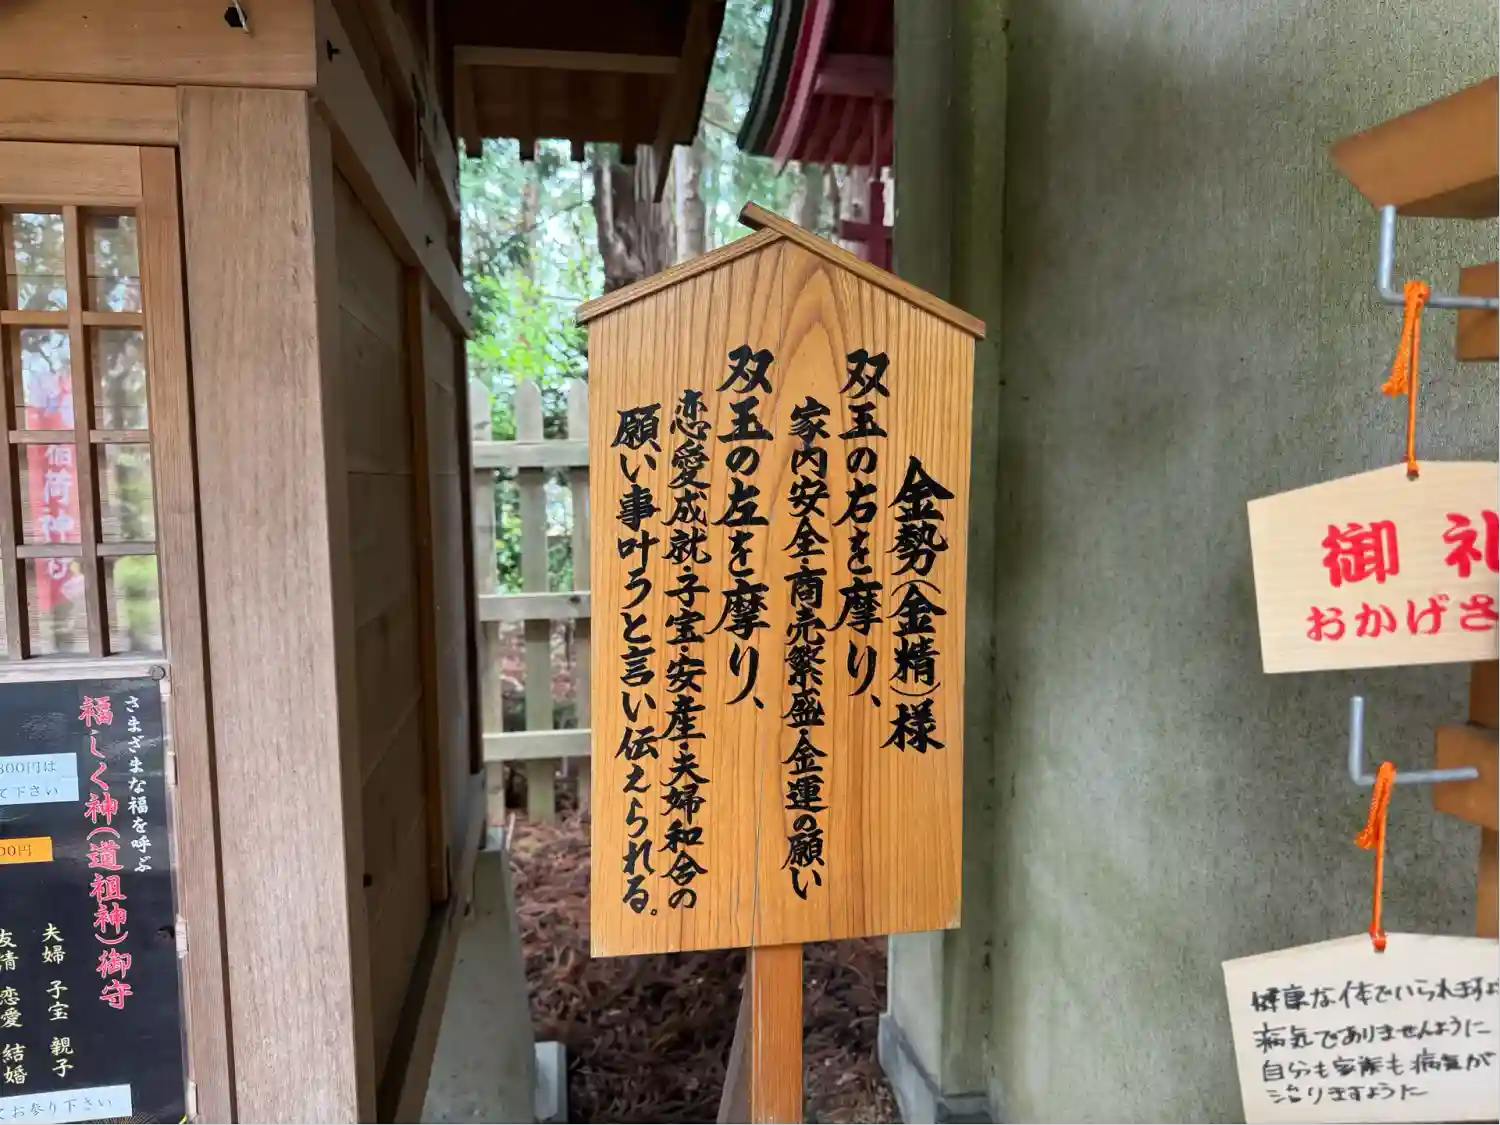 金勢(金精)様
双玉の右を摩り、
家内安全・商売繁盛・金運の願い
双玉の左を摩り、
恋愛成就・子宝・安産・夫婦和合の
願い事叶うと言い伝えられる。
御礼
おかげさ
健康な体でいられますよ
病気でありませんように
自分も家族も病気が
治りますように
さまざまな福を呼ぶ
福しく神(道祖神)御守
800円は
て下さい
00円
夫婦 子宝 親子
友情 恋愛 結婚
てお参り下さい
稲荷神